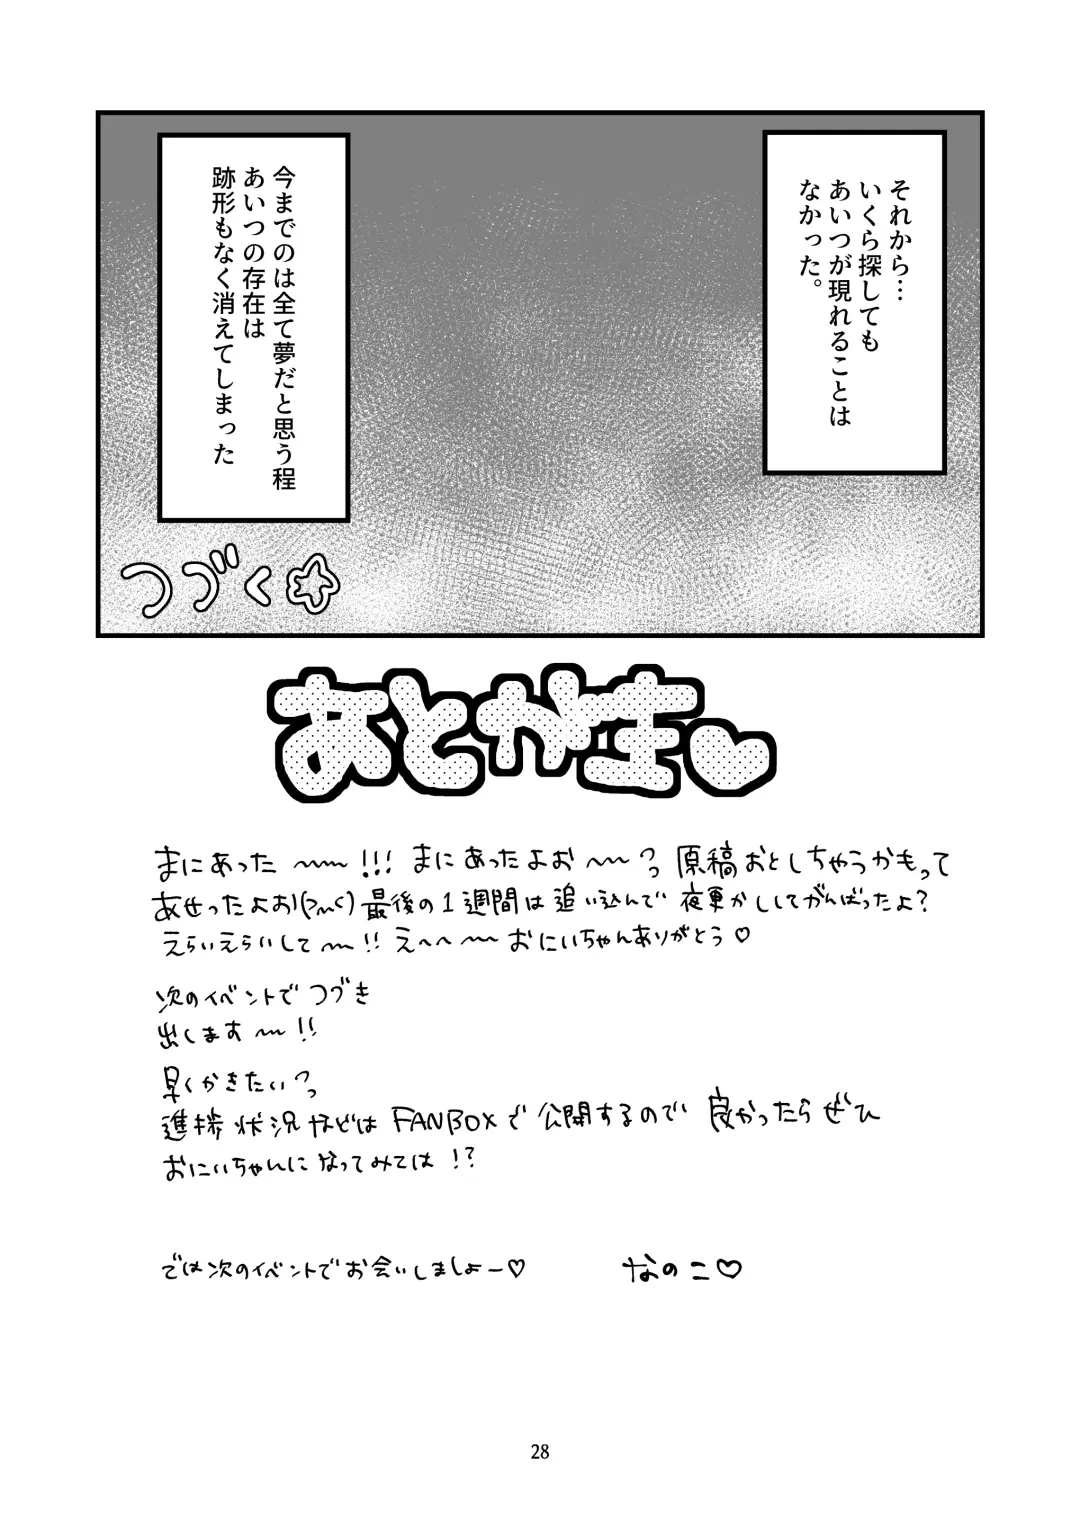 それから…
いくら探しても
あいつが現れることは
なかった。
今までのは全て夢だと思う程
あいつの存在は
跡形もなく消えてしまった
つづく☆
あとがき♡
まにあった〜〜!!!まにあったよお〜〜っ 原稿おとしちゃうかもって
あせったよお!(>~<)最後の1週間は追い込んで 夜更かししてがんばったよ?
えらいえらいして〜〜!!えへへ〜〜おにいちゃんありがとう♡
次のイベントでつづき
出します〜〜!!
早くかきたいっ
進捗状況などはFANBOXで公開するので良かったらぜひ
おにいちゃんになってみては!?
では次のイベントでお会いしましょー♡
なのこ♡
28